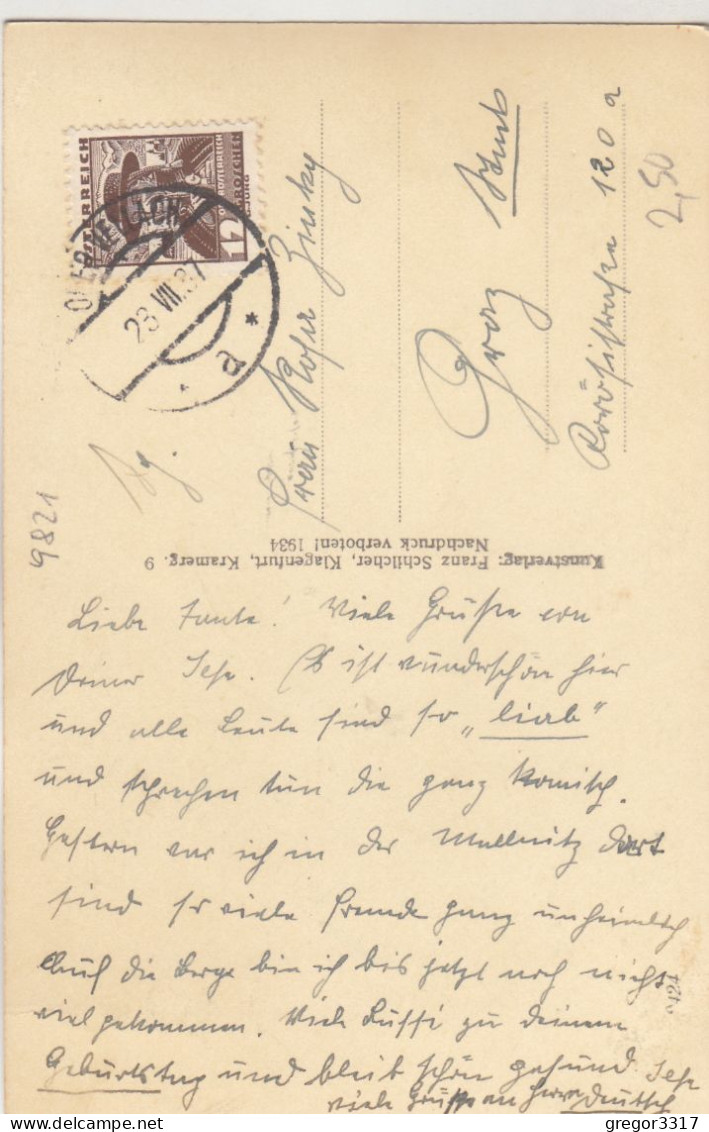 ÖSTERREICH
12
GROSCHEN
OBERVELLACH
23 VII 37
* a *
2,50
9821
Frau
Graz
120 a
Kunstverlag: Franz Schilcher, Klagenfurt, Kramerg. 9
Nachdruck verboten! 1934
Liebe Tante! Viele Grüße von
Deiner Ilse. Es ist wunderschön hier
und alle Leute sind so „liab“
und sprechen tun die ganz komisch.
Gestern war ich in der Mallnitz dort
sind so viele Fremde ganz unheimlich
Auf die Berge bin ich bis jetzt noch nicht
viel gekommen. Viele Bussi zu deinem
Geburtstag und bleib schön gesund Ilse
viele Grüsse an Herrn Deutsch
gregor3317